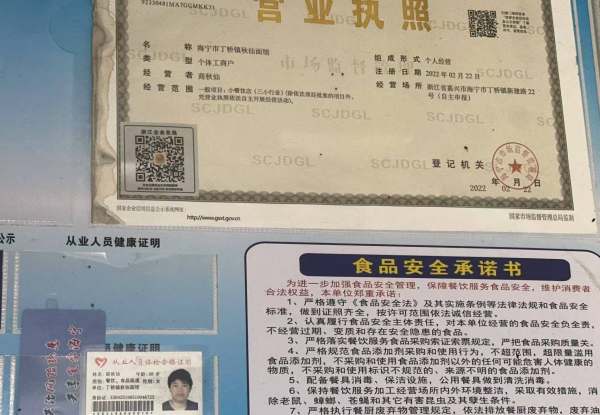 营业执照
名 称 海宁市丁桥镇秋仙面馆
类 型 个体工商户
经 营 者 蒋秋仙
经 营 范 围 一般项目：小餐饮店（三小行业）（除依法须经批准的项目外，
凭营业执照依法自主开展经营活动）。
组 成 形 式 个人经营
注 册 日 期 2022 年 02 月 22 日
经 营 场 所 浙江省嘉兴市海宁市丁桥镇新建路22
号（自主申报）
SCJDGL
登 记 机 关
2022 年 02 月 22 日
国家企业信用信息公示系统网址：
http://www.gsxt.gov.cn
国家市场监督管理总局监制
公示
从业人员健康证明
从业人员体检合格证明
食品安全承诺书
为进一步加强食品安全管理，保障餐饮服务食品安全，维护消费者
合法权益，本单位郑重承诺：
1、严格遵守《食品安全法》及其实施条例等法律法规和食品安全
标准，做到证照齐全，按许可范围依法诚信经营。
2、认真履行食品安全主体责任，对本单位经营的食品安全负全责，
不经营过期、变质和存在安全隐患的食品。
3、严格落实餐饮服务食品采购索证索票规定，严把食品采购质量关。
4、严格规范食品添加剂采购和使用行为，不超范围、超限量滥用
食品添加剂，不采购和使用食品添加剂以外的任何可能危害人体健康的
物质，不采购和使用标识不规范的、来源不明的食品添加剂。
5、配备餐具消毒、保洁设施，公用餐具做到清洗消毒。
6、保持餐饮服务加工经营场所内外环境整洁，采取有效措施，消
除老鼠、蟑螂、苍蝇和其它有害昆虫及其孳生条件。
7、严格执行餐厨废弃物管理规定，依法排放餐厨废弃物，废弃